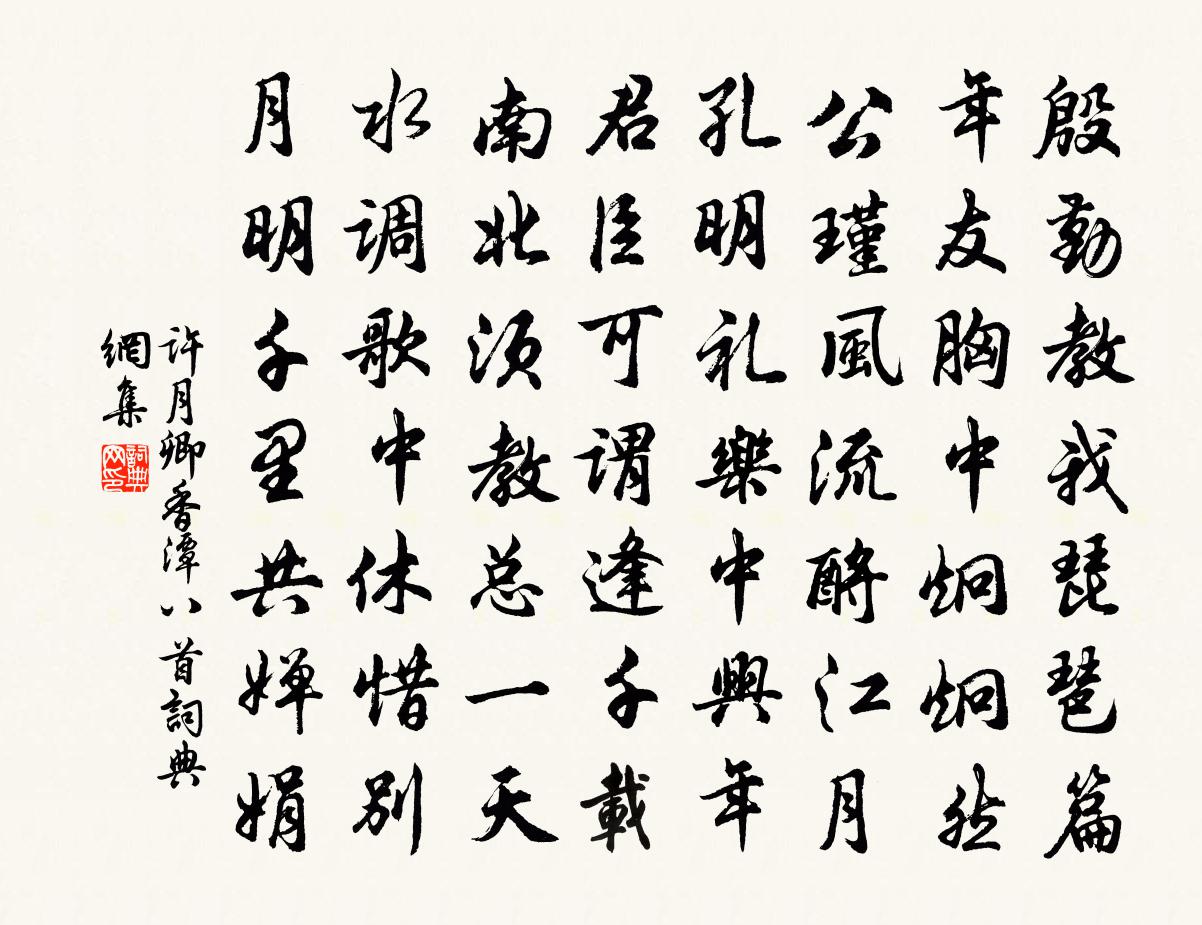 殷勤教我琵琶篇
年友胸中炯炯然
公瑾風流酹江月
孔明礼樂中興年
君臣可謂逢千載
南北须教总一天
水调歌中休惜别
月明千里共婵娟
许月卿香潭八首詞典
網集
詞典網印